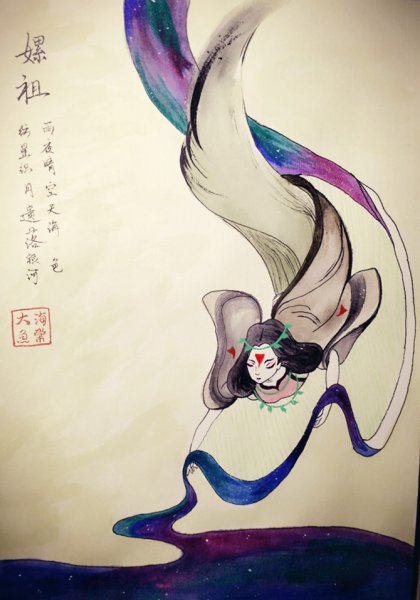 嫘祖
雨夜晴空天海一色
纺星织月遗落银河
海棠
大鱼